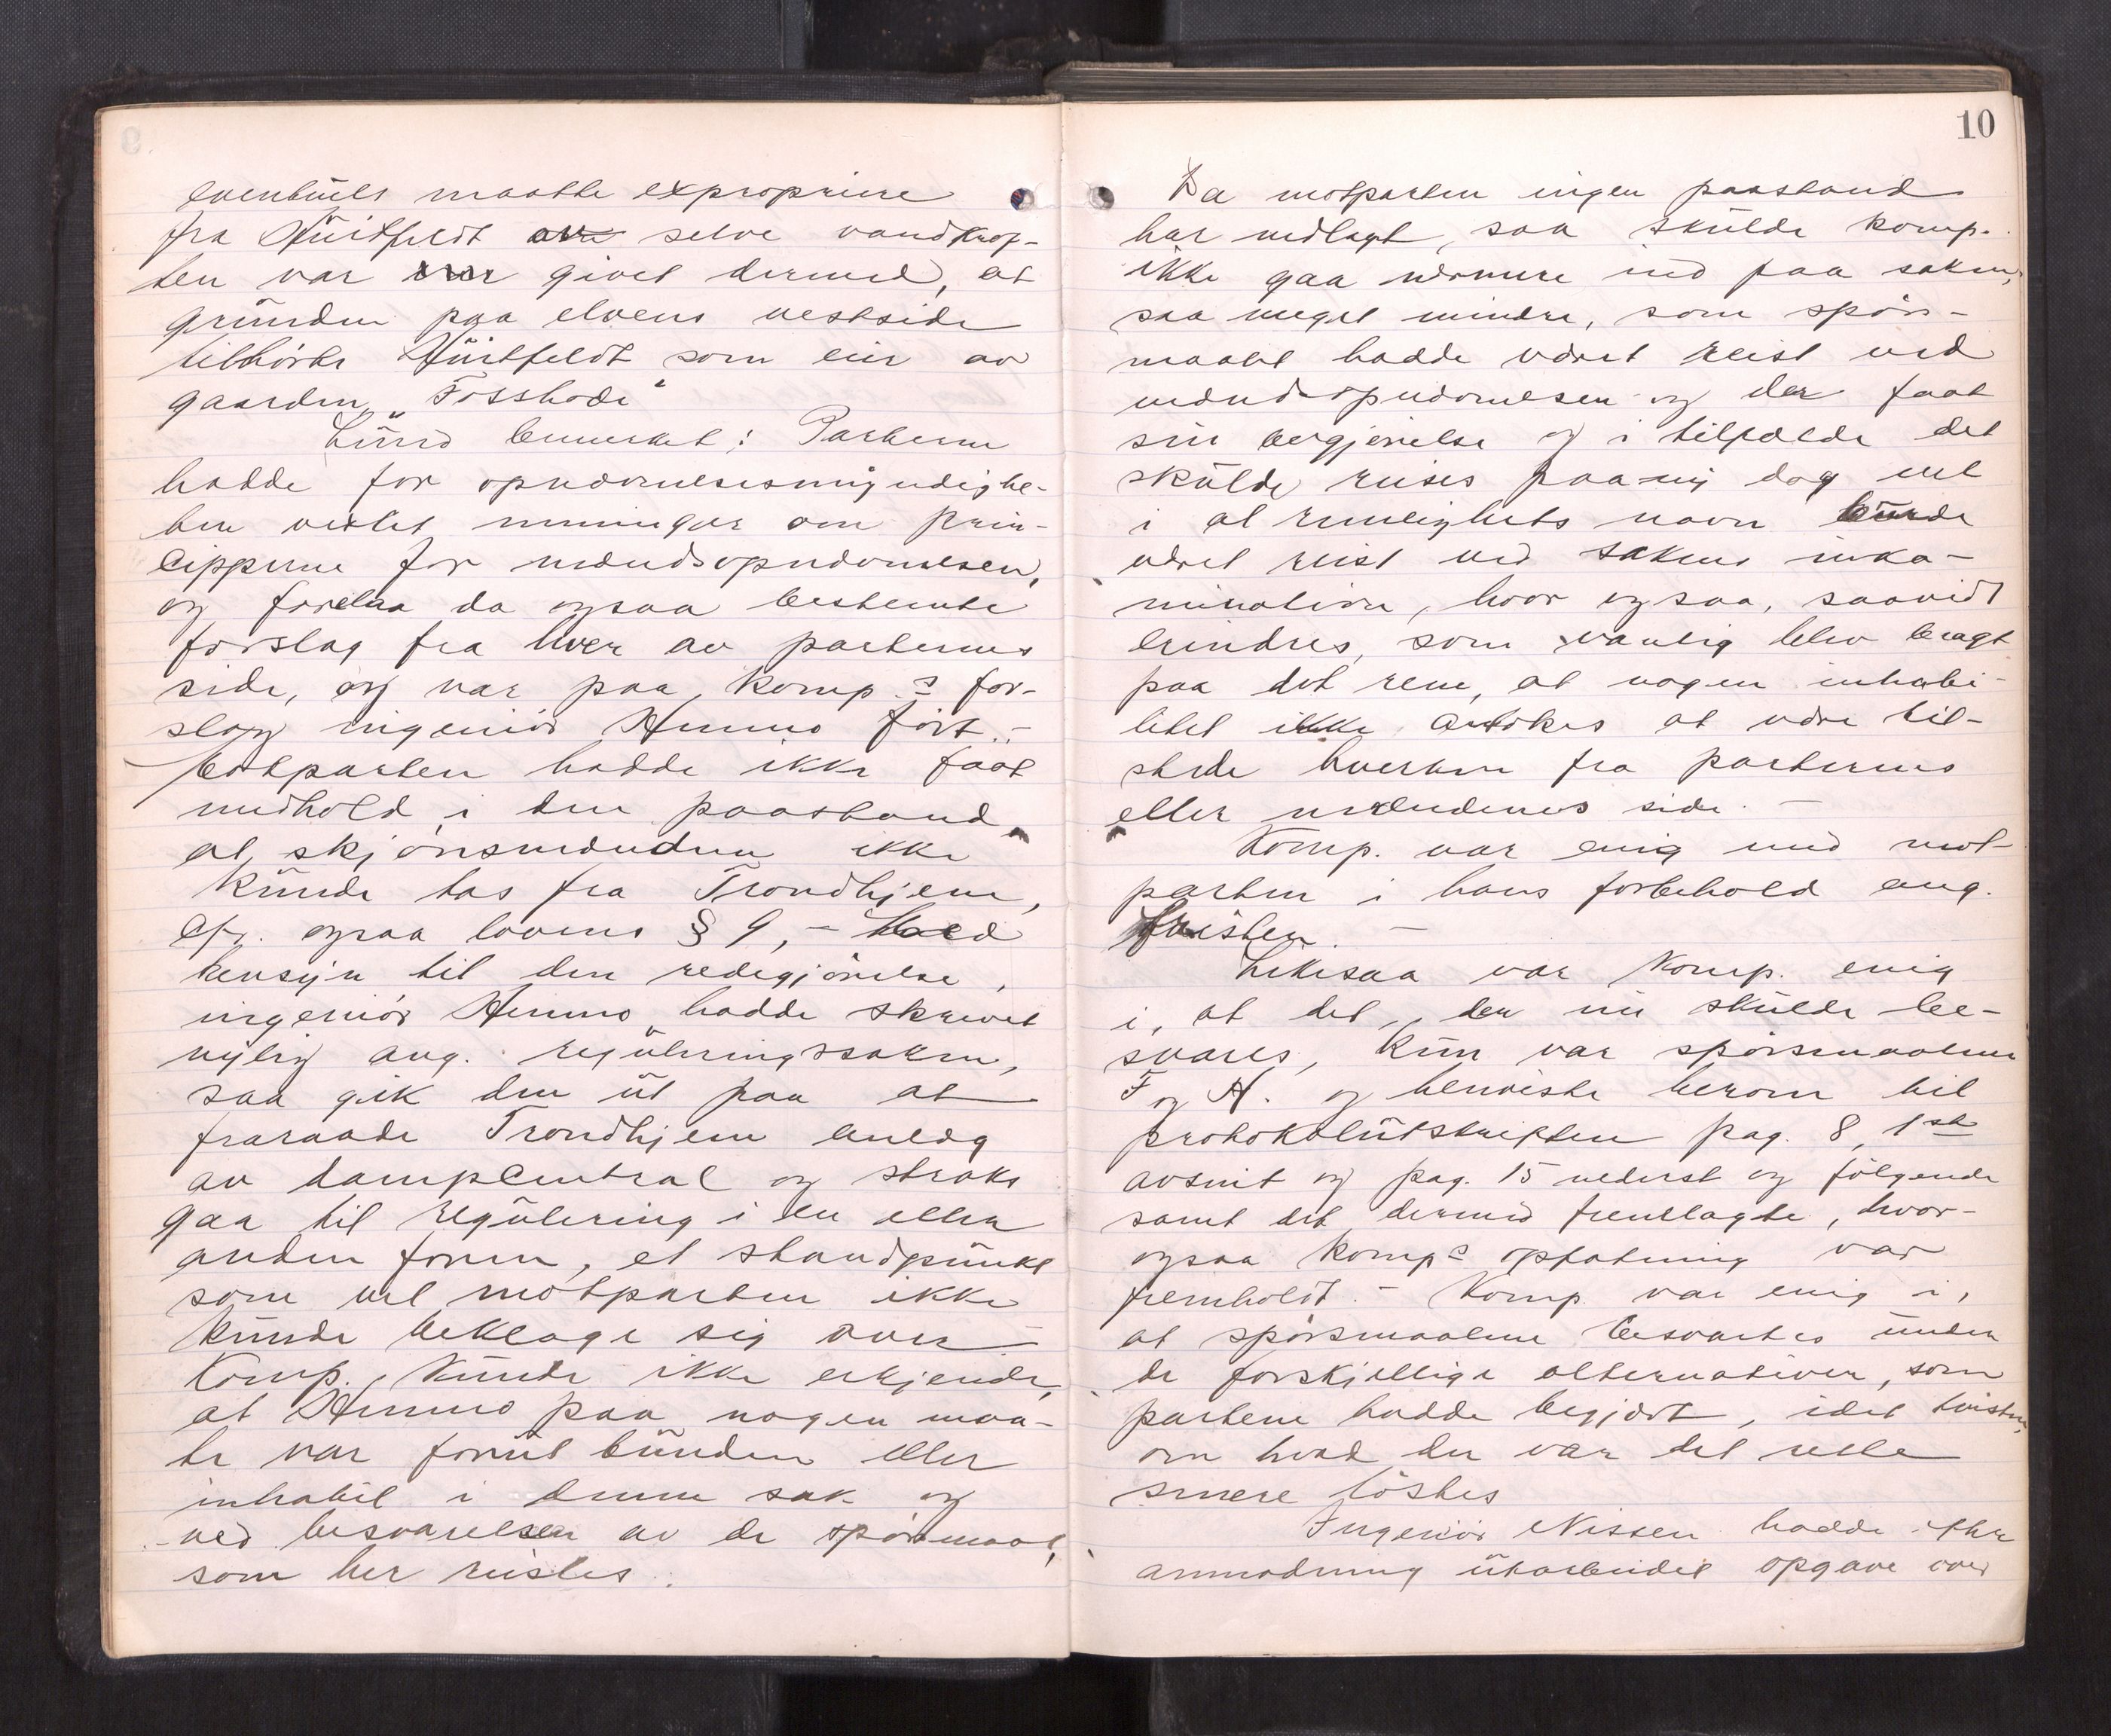 eventuelt maatte expropriere
fra Huitfeldt selve vandkraf-
ten var givet dermed, at
grunden paa elvens vestside
tilhörte Huitfeldt som eier av
gaarden „Fosshode"
Lund bemerket: Parterne
hadde for opnævnelsesmyndighe-
ten vexlet meninger om prin-
cipperne for mændsopnævnelsen,
og forelaa da ogsaa bestemte
forslag fra hver av parternes
side, og var paa komp.s for-
slag ingeniör Hemmo fört. -
Motparten hadde ikke faat
medhold i den paastand
at skjönsmændene ikke
kunde tas fra Trondhjem,
cfr. ogsaa lovens § 9, - Med
hensyn til den redegjörelse,
ingeniör Hemmo hadde skrevet
nylig ang. reguleringssaken,
saa gik den ut paa at
fraraade Trondhjem anlæg
av dampcentral og straks
gaa til regulering i en eller
anden form, et standpunkt
som vel motparten ikke
kunde beklage sig over
Komp. kunde ikke erkjende,
at Hemmo paa nogen maa-
te var forut bunden eller
inhabil i denne sak og
ved besvarelsen av de spörsmaal,
som her reistes.
10
Da motparten ingen paastand
har nedlagt, saa skulde komp.
ikke gaa nærmere ind paa saken,
saa meget mindre, som spörs-
maalet hadde været reist ved
mændsopnævnelsen og der faat
sin avgjörelse og i tilfælde det
skulde reises paany dog vel
i al rimelighets navn burde
været reist ved sakens inka-
mination, hvor ogsaa, saavidt
erindres, som vanlig blev bragt
paa det rene, at nogen inhabi-
litet ikke antokes at være til-
stede hverken fra parternes
eller mændenes side. -
Komp. var enig med mot-
parten i hans forbehold ang.
fristen. -
Likesaa var Komp. enig
i, at det, der nu skulde be-
svares, kun var spörsmaalene
F og H. og henviste herom til
protokolutskriften pag. 8, 1ste
avsnit og pag. 15 nederst og fölgende
samt det dermed fremlagte, hvor-
ogsaa komps opfatning var
fremholdt. - Komp. var enig i,
at spörsmaalene besvartes under
de forskjellige alternativer, som
parterne hadde begjært, idet tvisten,
om hvad der var det rette
senere löstes
Ingeniör Nissen hadde efter
anmodning utarbeidet opgave over